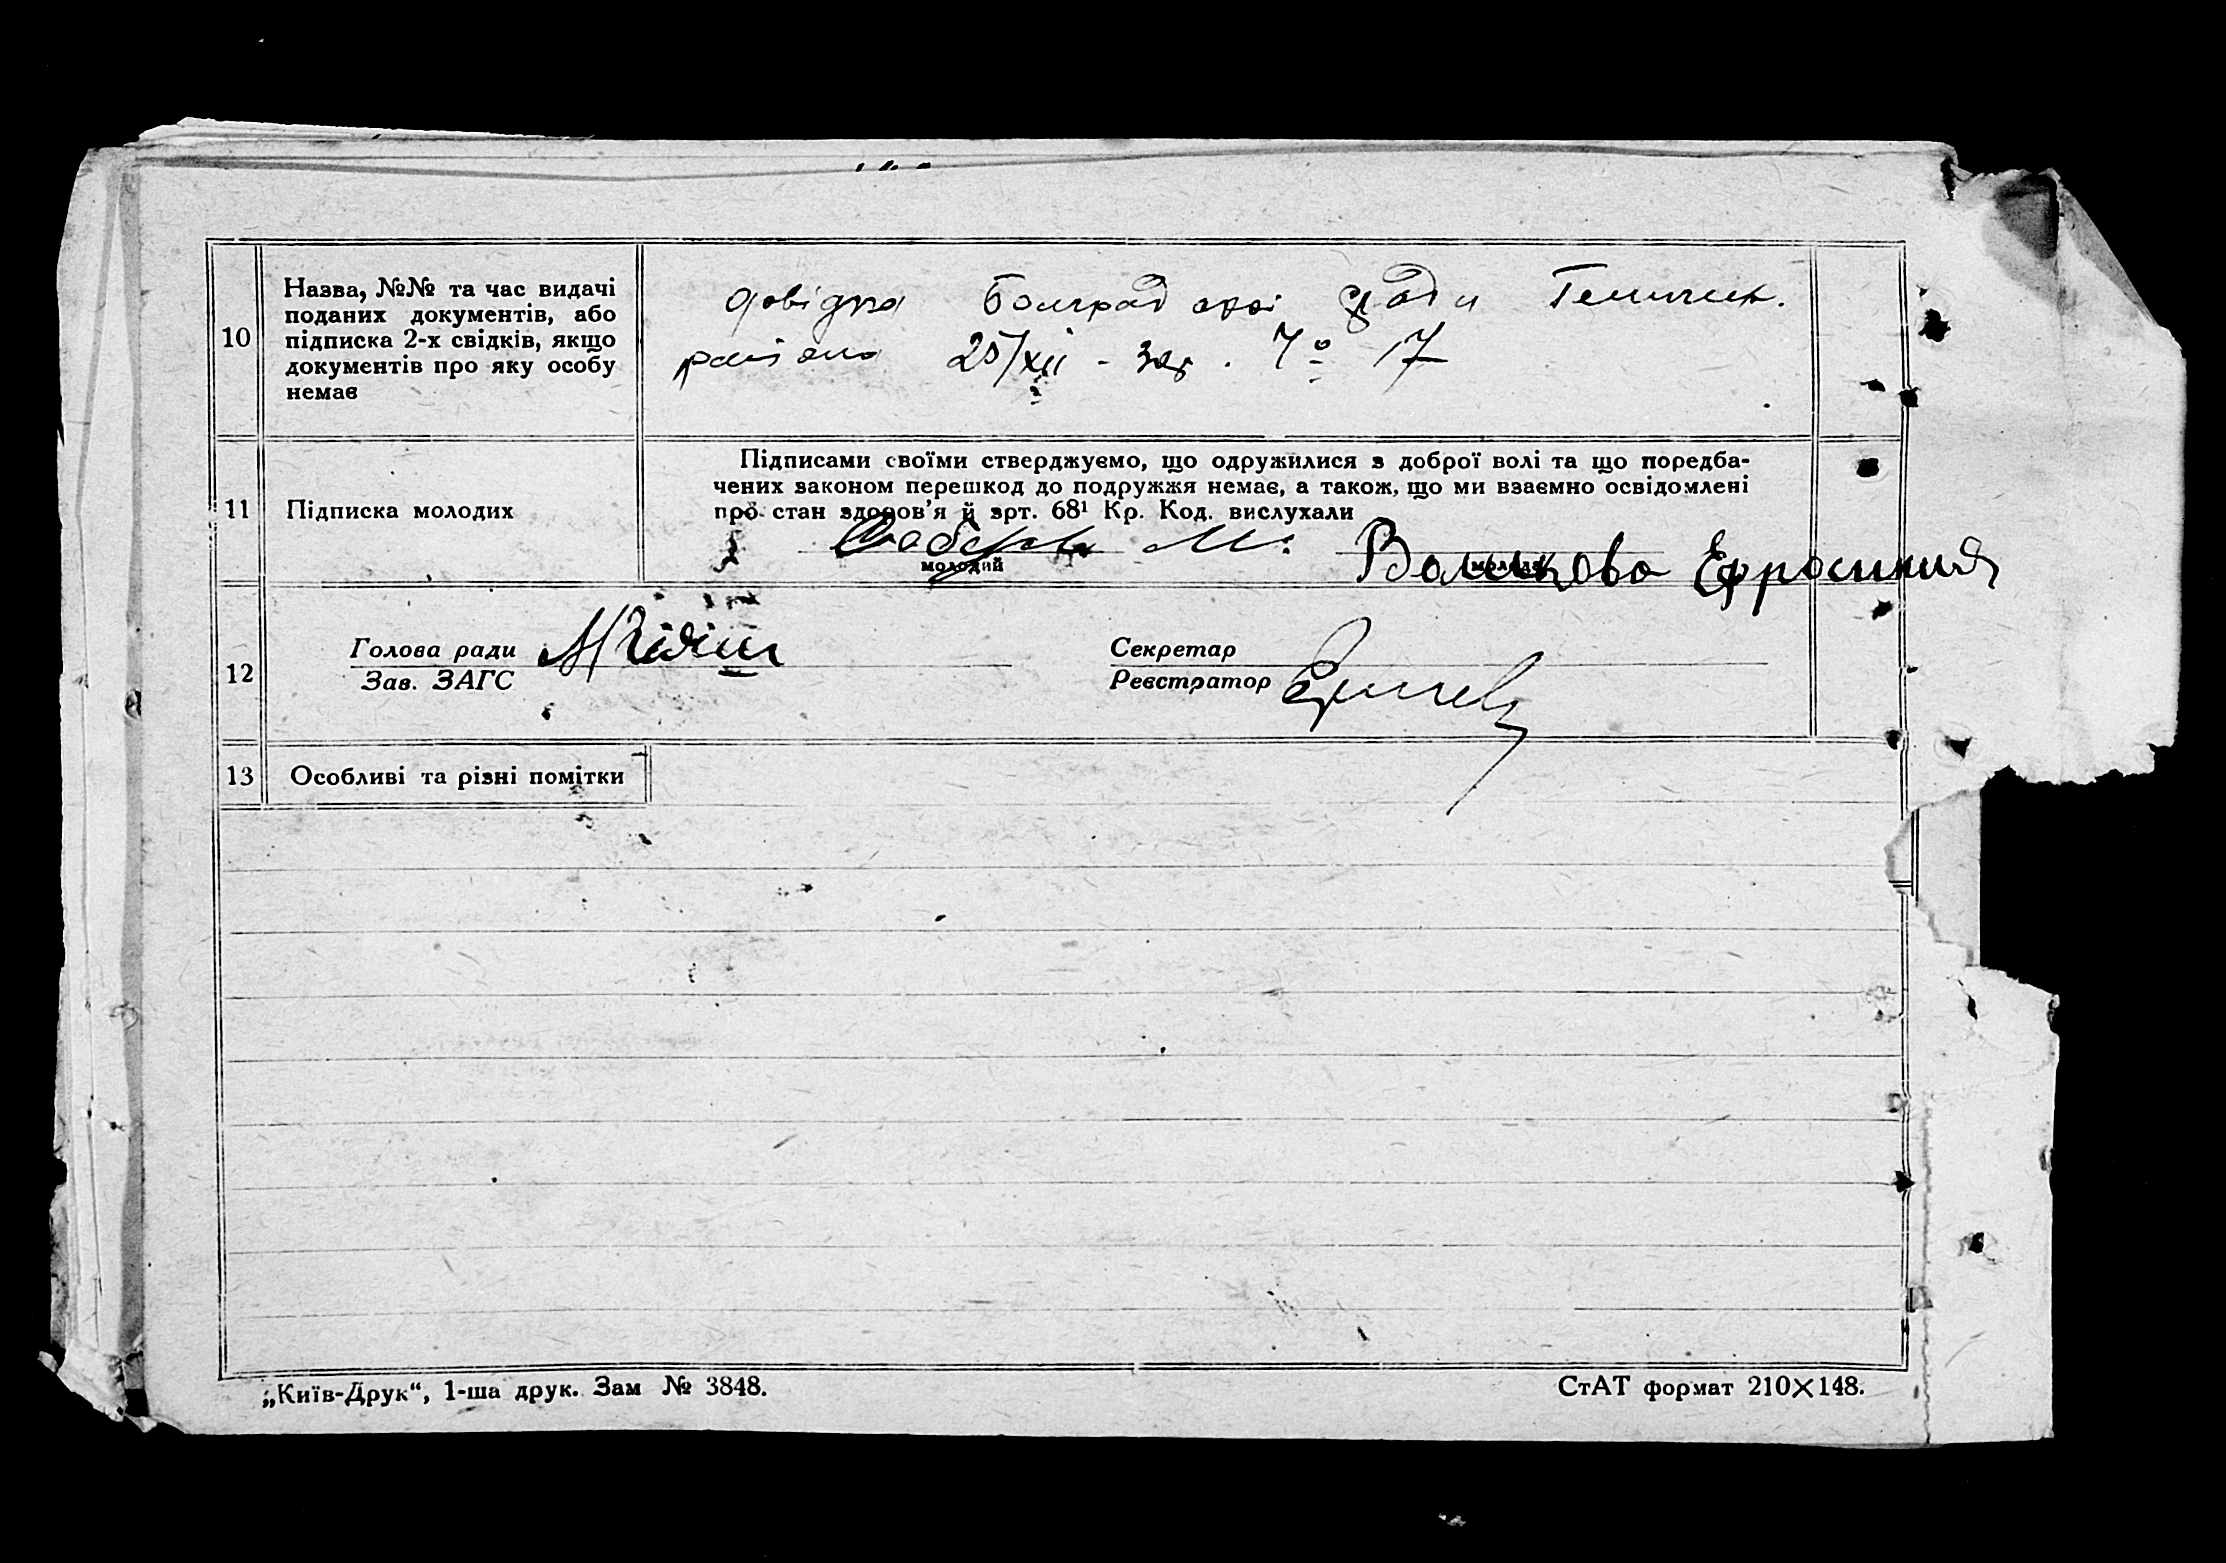 10
Назва, №№ та час видачі
поданих документів, або
підписка 2-х свідків, якщо
документів про яку особу
немає
довідка Болград ської ради Геничеськ.
району 25/XII - 32р. № 17
11
Підписка молодих
Підписами своїми стверджуємо, що одружилися з доброї волі та що поредба-
чених законом перешкод до подружжя немає, а також, що ми взаємно освідомлені
про стан здоров'я й зрт. 68¹ Кр. Код. вислухали
М.
Волкова Ефросиния
молодий
молода
12
Голова ради
Зав. ЗАГС
Секретар
Реєстратор
13
Особливі та різні помітки
„Київ-Друк“, 1-ша друк. Зам № 3848.
СтАТ формат 210×148.